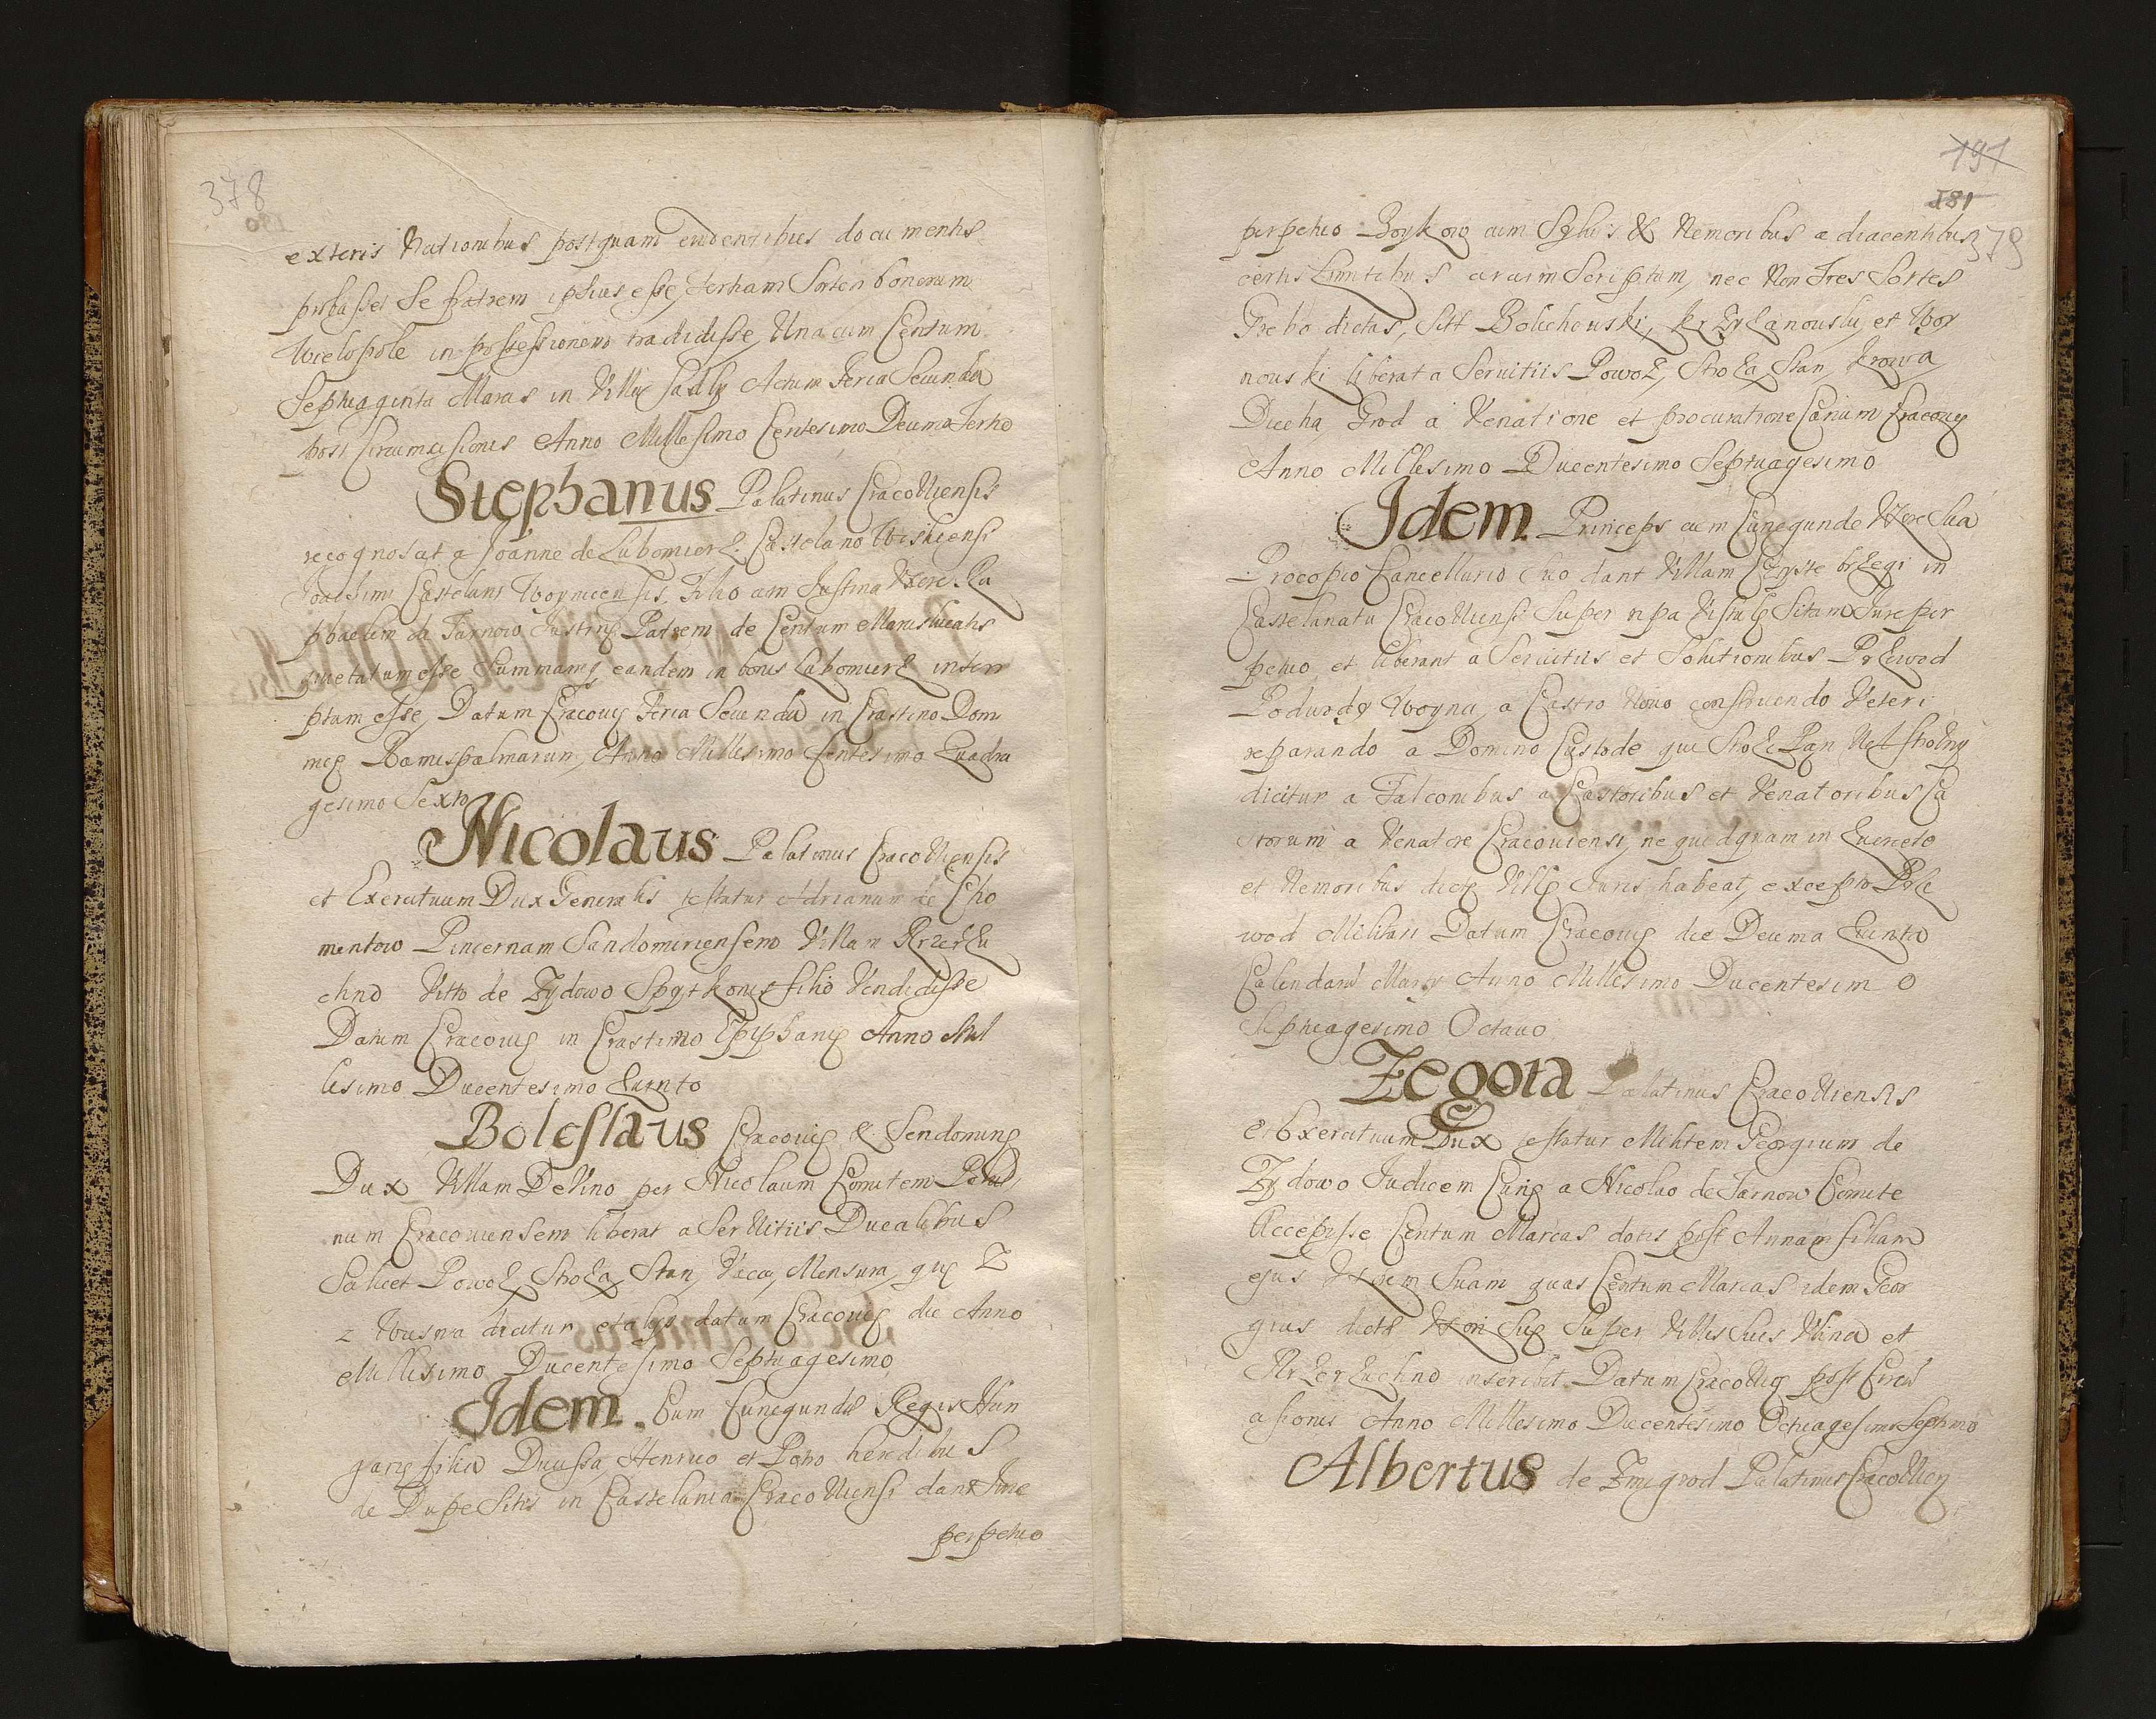 378
exteris Nationibus postquam euidentibus documentis
probasset Se patrem ipsius esse, tertiam Sortem bonorum
Wielopole in possessionem tradidisse, Una cum Centum
Septuaginta Marcas in Villa Actum Feria Secunda
post Circumcisionis Anno Millesimo Centesimo Decimo Tertio
Stephanus Palatinus CracoViensis
recognoscat a Joanne de Lubomierz Castelano Wisliciensi
Joachimi Castelani Woyniicensis Filio cum Justina Uxore Ra
phaelem de Tarnow Justinę Patrem de Centum Marcis
quietatum esse Summamq eandem in bonis Lubomierz inscri
ptam esse, Datum Cracouię Feria Secunda in Crastino Dom
nicę Ramispalmarum, Anno Millesimo Centesimo Quadra
gesimo Sexto
Nicolaus Palatinus CracoViensis
et Exercituum Dux Generalis testatur Adrianum de Cho
mentow Pincernam Sandomiriensem Villam Krzerzu
chno Vitto de Zydowo Spytkonis filio Vendidisse
Datum Cracouię in Crastimo Epiphanię Anno Mil
lesimo Ducentesimo Quinto
Boleslaus Cracouię & Sendomirię
Dux Villam DeVino per Nicolaum Comitem Palati
num Cracouiensem liberat a SerVitiis Ducalibus
Salicet Powoz, Stroza, Stan, Vacca, Mensura, quę Z
z Wusna dicitur et alijs datum Cracouię die Anno
Millesimo Ducentesimo Septuagesimo
Idem. Cum Cunegunda Regis Hun
garię filia Ducissa, Henrico et Petro heredibus
de Dupe Sitis in Castelania CracoViensi dant Jure
perpetuo
191
181
379
perpetuo Boykow cum Syluis & Nemoribus adiacentibus
certis Limitibus Scriptum, nec Non Tres Sortes
Grebo dictas, Silt Bolechouski, Krzyzanouski, et Woy
nouski liberat a Seruitiis Powoz, Stroza, Stan, Krowa
Ducha, Grod a Venatione et procuratione Canum Cracouię
Anno Millesimo Ducentesimo Septuagesimo
Idem Princeps cum Cunegunde Uxore Sua
Procopio Cancellario suo dant Villam Czyste brzegi in
Castelanatu CracoViensi Super ripa Vistulę Sitam Jure per
petuo, et liberant a Seruitiis et Solutionibus Przewod
Podwody Woyna, a Castro Nouo construendo Veteri
reparando a Domino Custode qui Stroz Pan Vel Strozny
dicitur a Falconibus a Castoribus et Venatoribus Ca
storum a Venatore Cracouiensi, ne quidquam in Querceto
et Nemoribus dictę Villę Juris habeat, excepto Prze
wod Militari Datum Cracouię die Decima Quinta
Calendarum Martij Anno Millesimo Ducentesimo
Septuagesimo Octauo
Zegota Palatinus CracoViensis
et Exercituum Dux testatur Militem Georgium de
Zydowo Judicem Curię a Nicolao de Tarnow Comite
Accepisse Centum Marcas dotis post Annam filiam
ejus Uxorem Suam quas Centum Marcas idem Geor
gius dictę Uxori Suę Super Villis Suis Vina et
Krzerzuchno inscribit Datum CracoVię post Circu
asionis Anno Millesimo Ducentesimo Octuagesimo Septimo
Albertus de Zmigrod Palatinus CracoVien